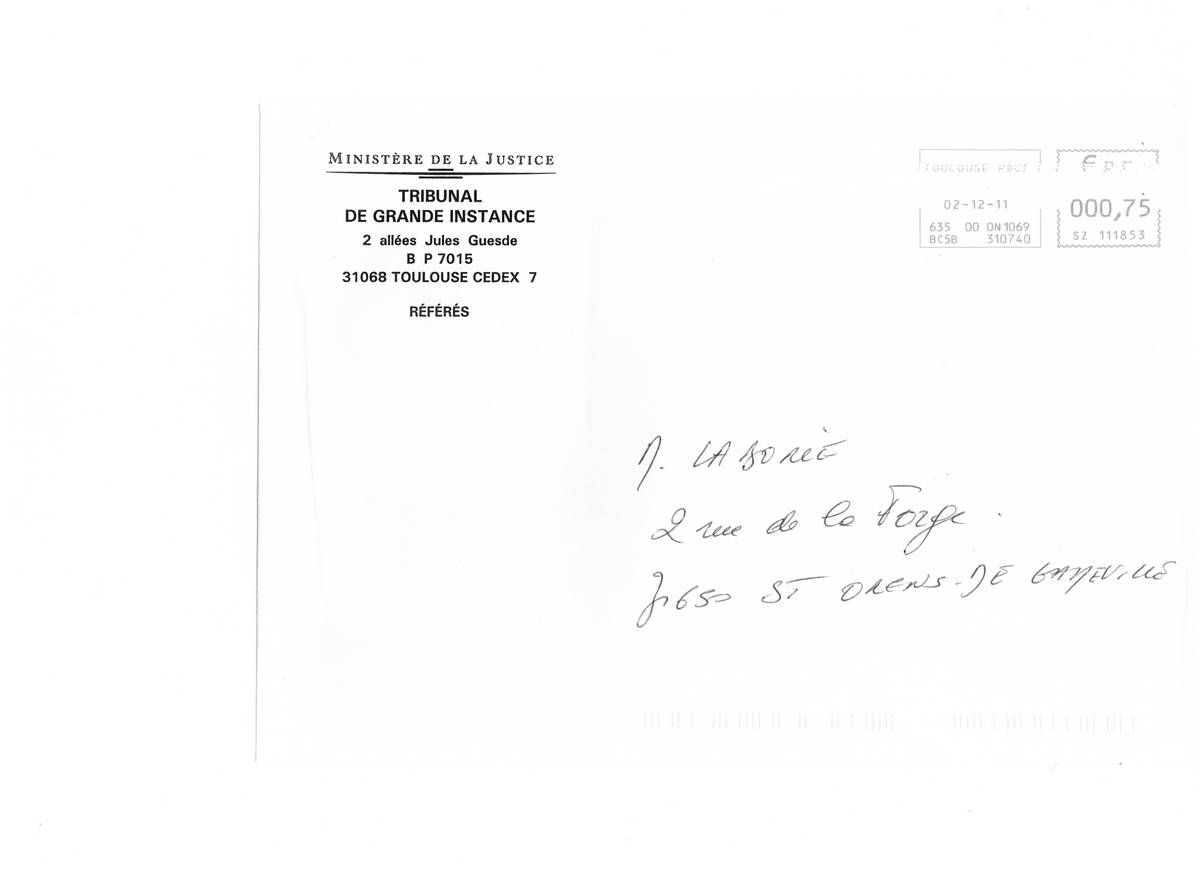 MINISTÈRE DE LA JUSTICE
TRIBUNAL
DE GRANDE INSTANCE
2 allées Jules Guesde
B P 7015
31068 TOULOUSE CEDEX 7
RÉFÉRÉS
TOULOUSE PDCT
02-12-11
635 00 DN1069
BC5B 310740
€
000,75
SZ 111853
M. LABORIE
2 rue de la Forge.
31650 ST ORENS-DE GAMEVILLE